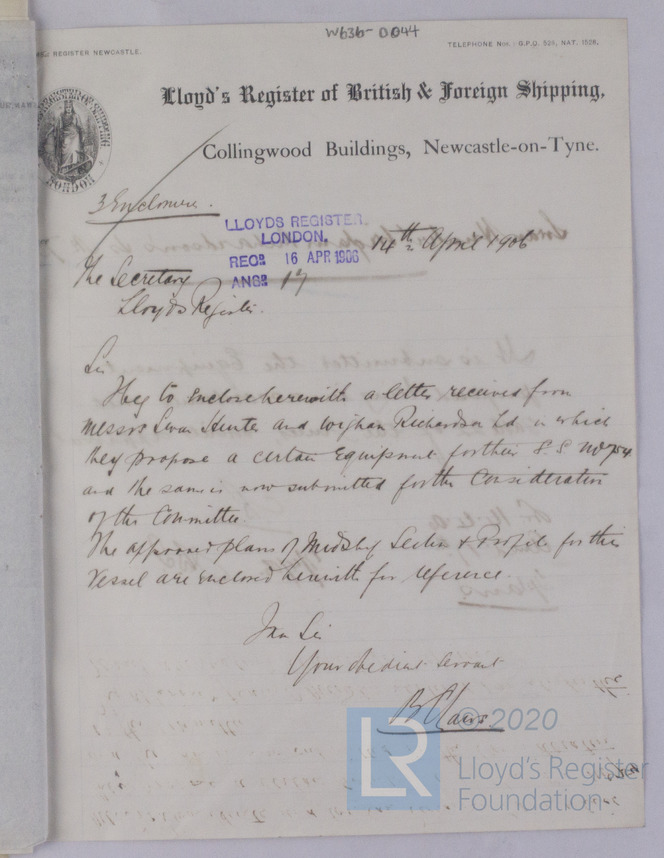 W636-0044
REGISTER NEWCASTLE.
TELEPHONE Nos. G.P.O. 525, NAT. 1528.
Lloyd's Register of British & Foreign Shipping,
Collingwood Buildings, Newcastle-on-Tyne.
LONDON
3 Enclosure.
LLOYDS REGISTER,
LONDON.
14th April 1906
RECD 16 APR 1906
ANSD 17
The Secretary
Lloyds Register.
Sir
I beg to enclose herewith a letter received from
Messrs Swan Hunter and Wigham Richardson Ld in which
they propose a certain Equipment for their S.S. No 754
and the same is now submitted for the Consideration
of the Committee
The approved plans of Midship Section & Profile for this
Vessel are enclosed herewith for reference
I am Sir
Your obedient Servant
© 2020
LR
Lloyd's Register
Foundation